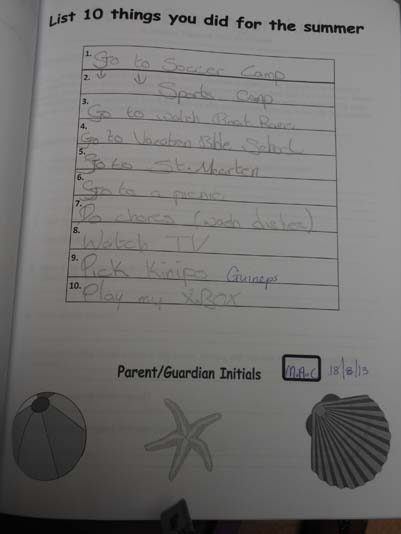 List 10 things you did for the summer
1. Go to Soccer Camp
2. ↓ ↓ Sports Camp
3. Go to watch Boat Race
4. Go to Vacation Bible School
5. Go to St. Maarten
6. Go to a picnic
7. Do chores (wash dishes)
8. Watch TV
9. Pick Kinips Guineps
10. Play my XBOX
Parent/Guardian Initials M.A.C 18/8/13